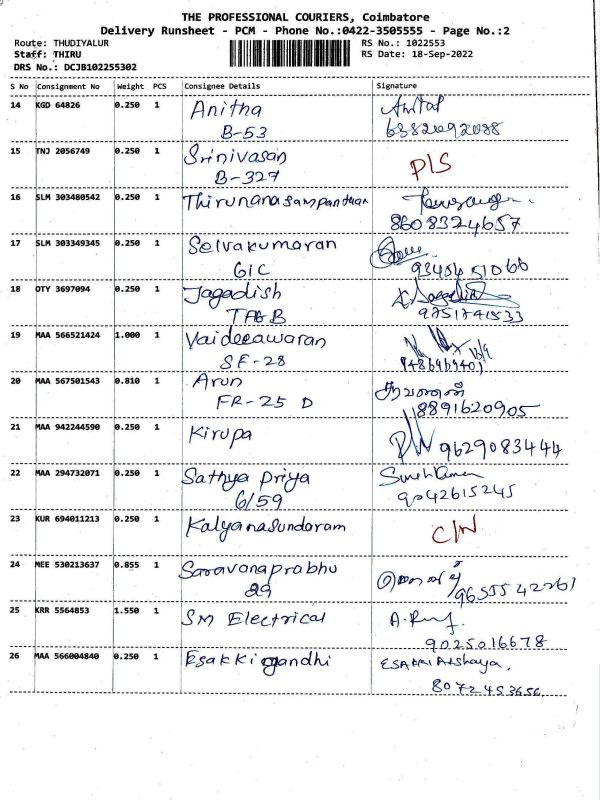 THE PROFESSIONAL COURIERS, Coimbatore
Delivery Runsheet - PCM - Phone No.:0422-3505555 - Page No.:2
Route: THUDIYALUR RS No.: 1022553
Staff: THIRU RS Date: 18-Sep-2022
DRS No.: DCJB102255302
S No Consignment No Weight PCS Consignee Details Signature
14 KGD 64826 0.250 1 Anitha
B-53 6382092088
15 TNJ 2056749 0.250 1 Srinivasan P/S
B-327
16 SLM 303480542 0.250 1 Thirunanasampanthan
8608324657
17 SLM 303349345 0.250 1 Selvakumaran
GIC
18 OTY 3697094 0.250 1 Jagadish
TAGB 9751741533
19 MAA 566521424 1.000 1 Vaideeawaran
SF-28 9486969401
20 MAA 567501543 0.810 1 Arun
FR-25 D 8891620905
21 MAA 942244590 0.250 1 Kirupa 9629083444
22 MAA 294732071 0.250 1 Sathya priya
6/59 9042615245
23 KUR 694011213 0.250 1 Kalyanasundaram C/N
24 MEE 530213637 0.855 1 Saravanaprabhu
29 9655542261
25 KRR 5564853 1.550 1 SM Electrical
9025016678
26 MAA 566004840 0.250 1 Esakkigandhi
8072453656